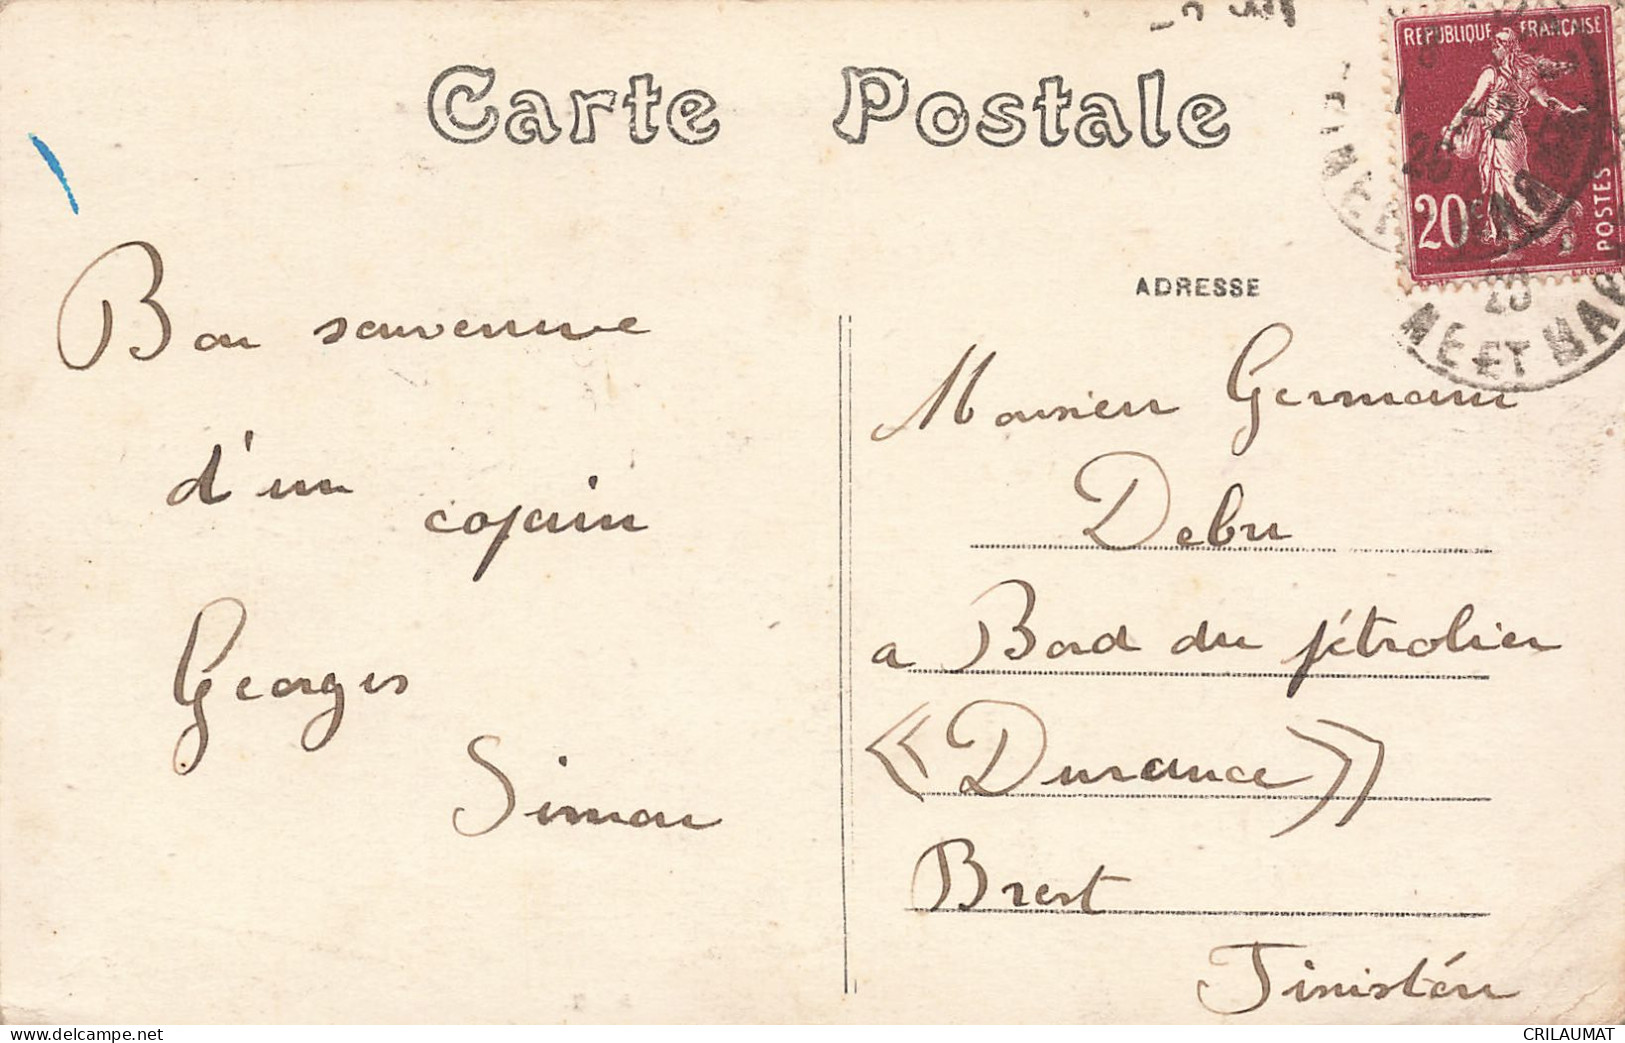 Carte Postale
REPUBLIQUE FRANÇAISE
20
POSTES
ME ET MAR
ADRESSE
Bon souvenire
d'un copain
Georges
Simon
Monsieu Germain
Debru
a Bord du pétrolier
« Durance »
Brest
Finistére
CRILAUMAT